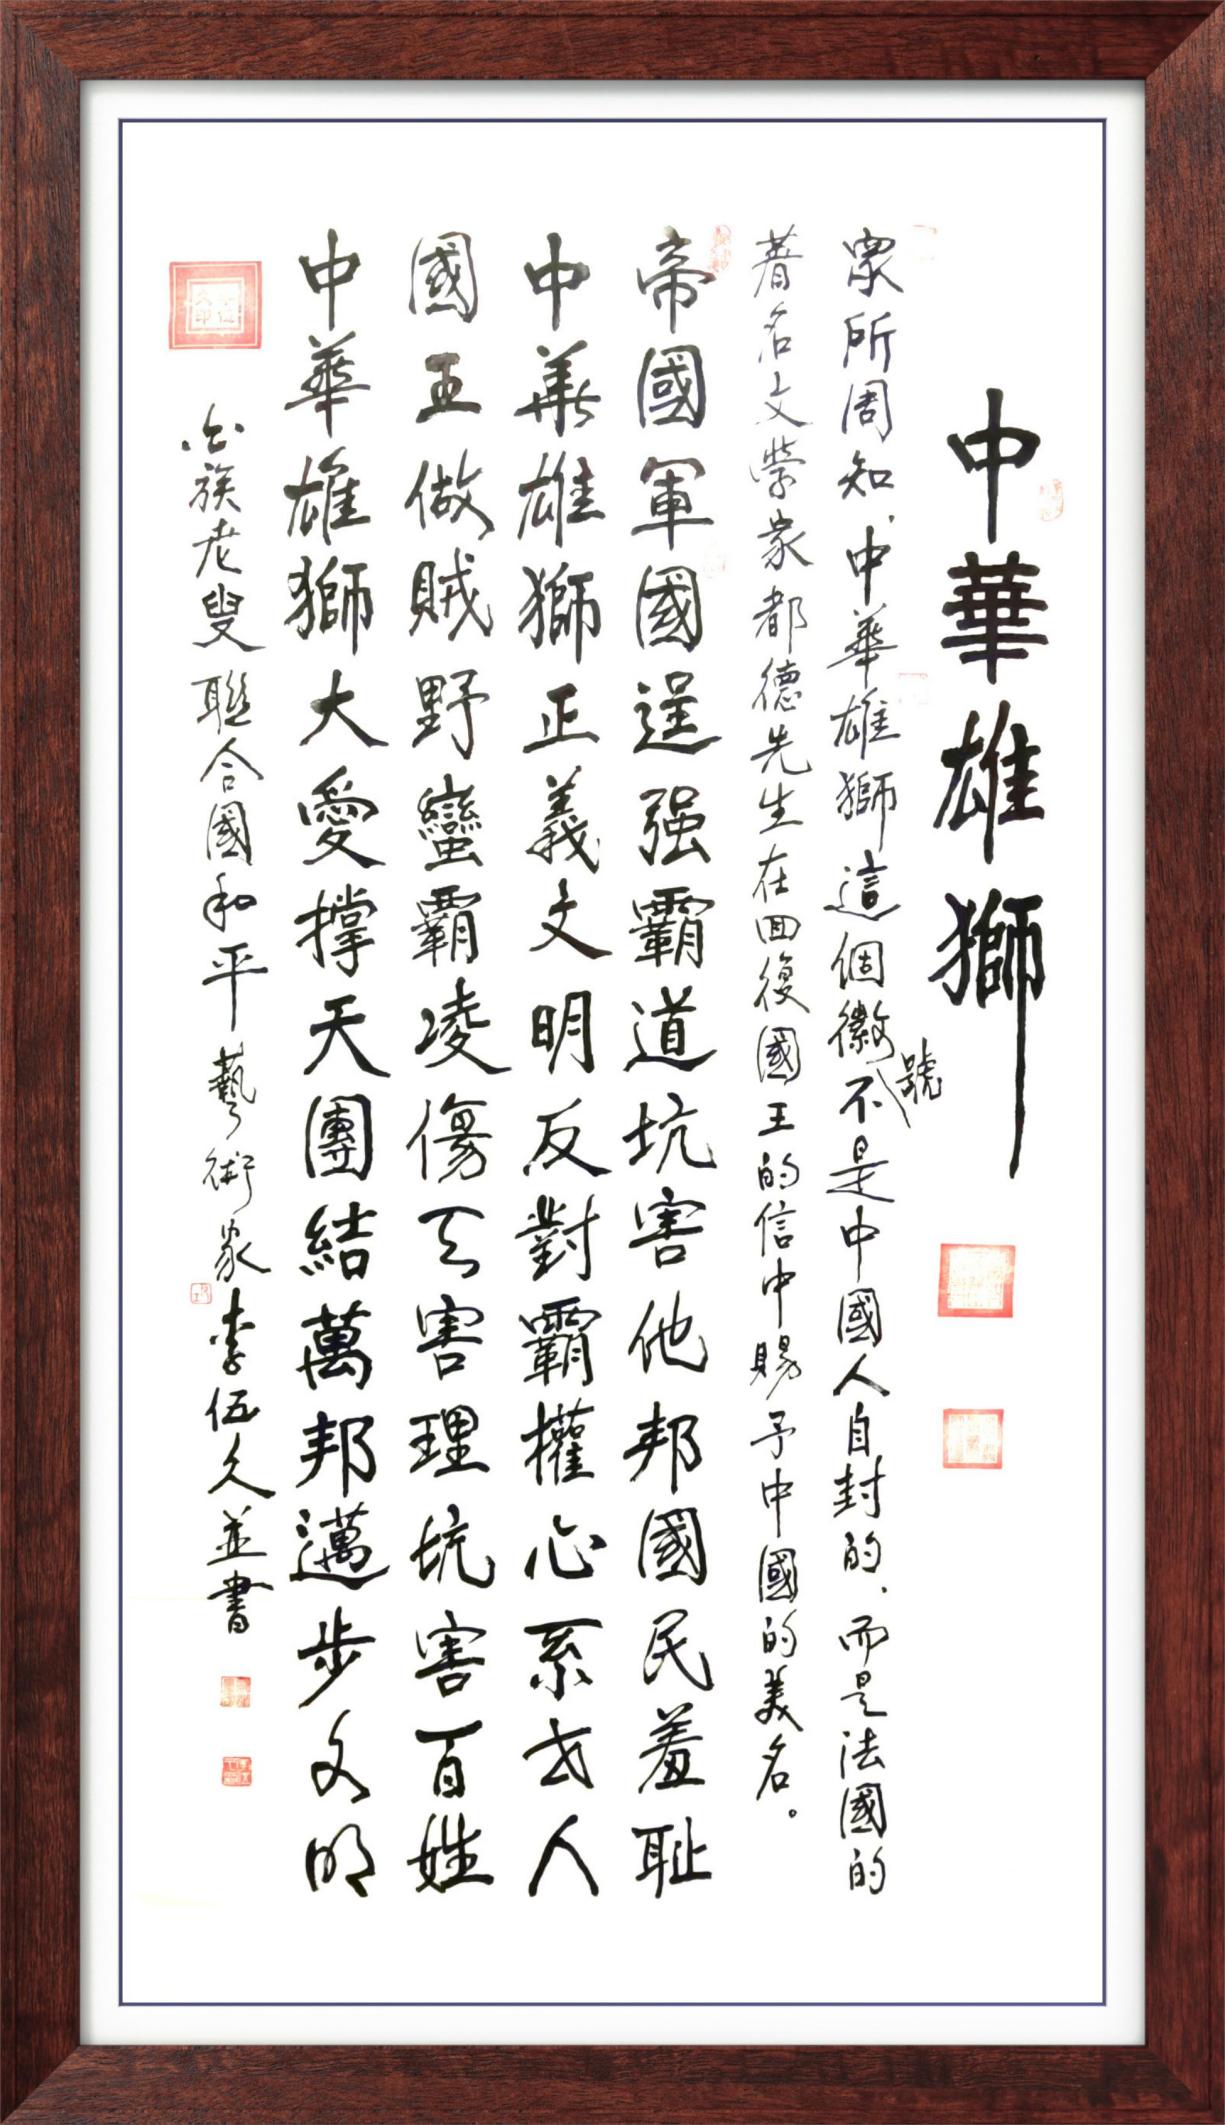 中華雄獅
眾所周知、中華雄獅這個徽號不是中國人自封的、而是法國的
著名文學家都德先生在回復國王的信中賜予中國的美名。
帝國軍國逞强霸道坑害他邦國民羞耻
中華雄獅正義文明反對霸權心系世人
國王做賊野蠻霸凌傷天害理坑害百姓
中華雄獅大愛撑天團結萬邦邁步文明
白族老叟聯合國和平藝術家李伍久並書